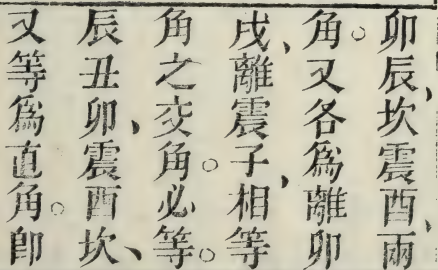 卯辰、坎震酉、兩
角。又各爲離卯
戌、離震子、相等
角之交角。必等。
辰丑卯、震酉坎、
又等爲直角。卽